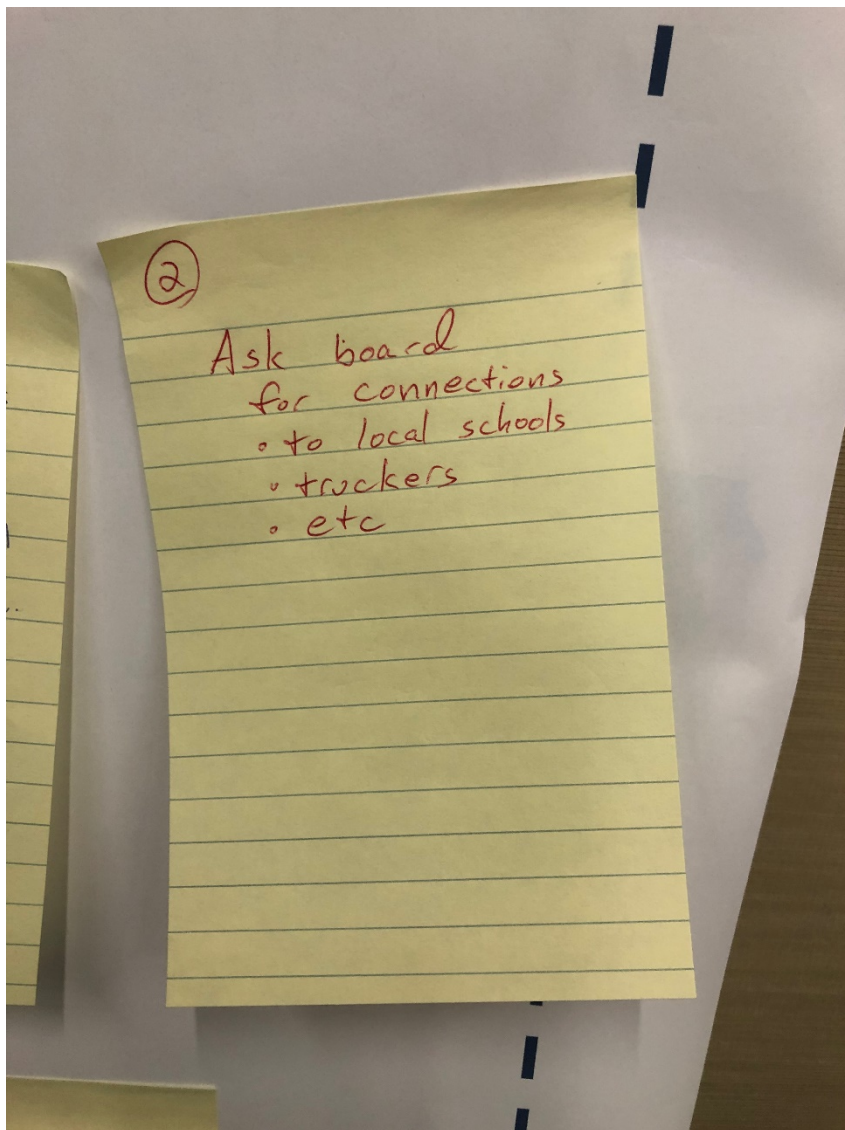 2
Ask board
for connections
• to local schools
• truckers
• etc